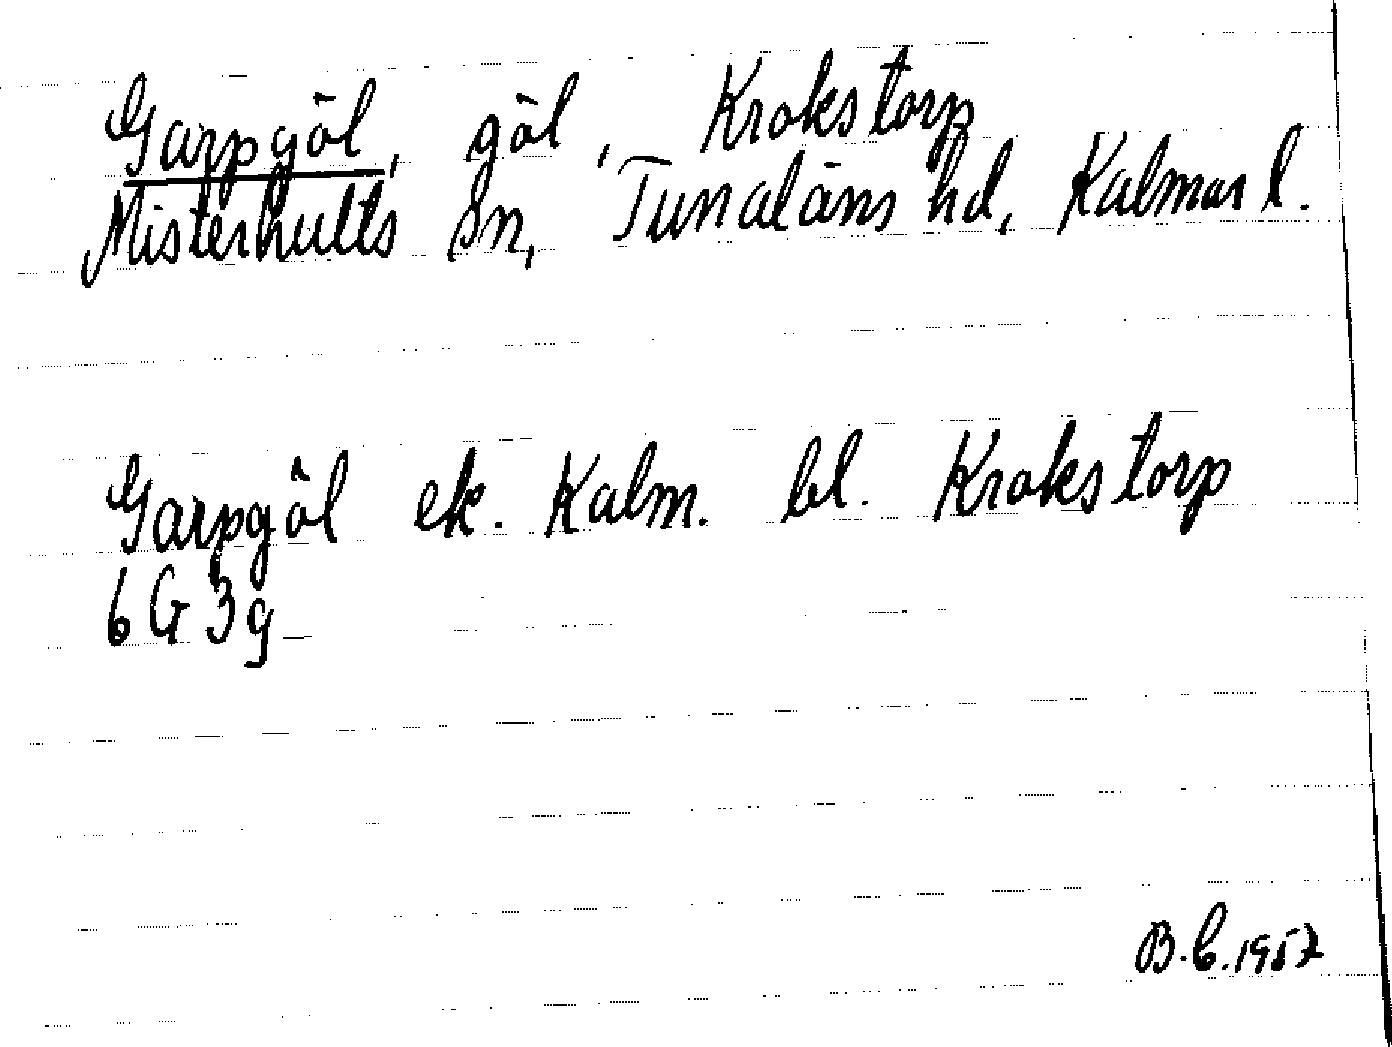 Garpgöl, göl, Krokstorp
Misterhults sn, Tunaläns hd, Kalmar l.
Garpgöl ek. Kalm. bl. Krokstorp
6 G 3 g
B.C. 1957